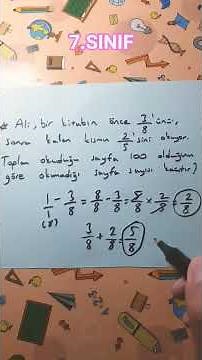 7.SINIF
* Ali, bir kitabın önce 3/8'ünü,
sonra kalan kısmın 2/5'sini okuyor.
Toplam okuduğu sayfa 100 olduğuna
göre okumadığı sayfa sayısı kaçtır?
1/1 - 3/8 = 8/8 - 3/8 = 5/8 × 2/5 = 2/8
(8)
3/8 + 2/8 = 5/8